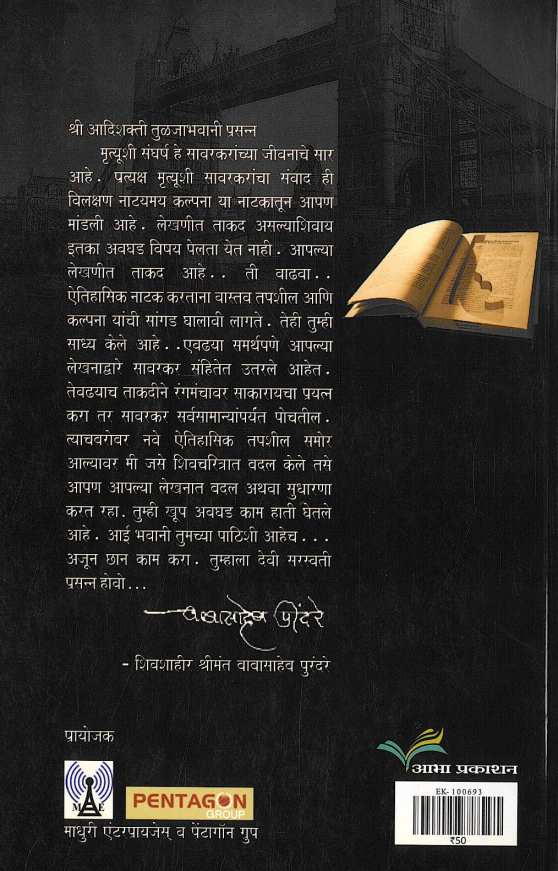 श्री आदिशक्ती तुळजाभवानी प्रसन्न
मृत्यूशी संघर्ष हे सावरकरांच्या जीवनाचे सार
आहे. प्रत्यक्ष मृत्यूशी सावरकरांचा संवाद ही
विलक्षण नाटयमय कल्पना या नाटकातून आपण
मांडली आहे. लेखणीत ताकद असल्याशिवाय
इतका अवघड विषय पेलता येत नाही. आपल्या
लेखणीत ताकद आहे.. ती वाढवा..
ऐतिहासिक नाटक करताना वास्तव तपशील आणि
कल्पना यांची सांगड घालावी लागते. तेही तुम्ही
साध्य केले आहे..एवढया समर्थपणे आपल्या
लेखनाद्वारे सावरकर संहितेत उतरले आहेत.
तेवढयाच ताकदीने रंगमंचावर साकारायचा प्रयत्न
करा तर सावरकर सर्वसामान्यांपर्यंत पोचतील.
त्याचबरोबर नवे ऐतिहासिक तपशील समोर
आल्यावर मी जसे शिवचरित्रात बदल केले तसे
आपण आपल्या लेखनात बदल अथवा सुधारणा
करत रहा. तुम्ही खूप अवघड काम हाती घेतले
आहे. आई भवानी तुमच्या पाठिशी आहेच...
अजून छान काम करा. तुम्हाला देवी सरस्वती
प्रसन्न होवो...
बाबासाहेब पुरंदरे
- शिवशाहीर श्रीमंत बाबासाहेब पुरंदरे
प्रायोजक
M E
PENTAGON
GROUP
माधुरी एंटरप्रायजेस् व पेंटागॉन ग्रुप
आभा प्रकाशन
EK-100693
₹50